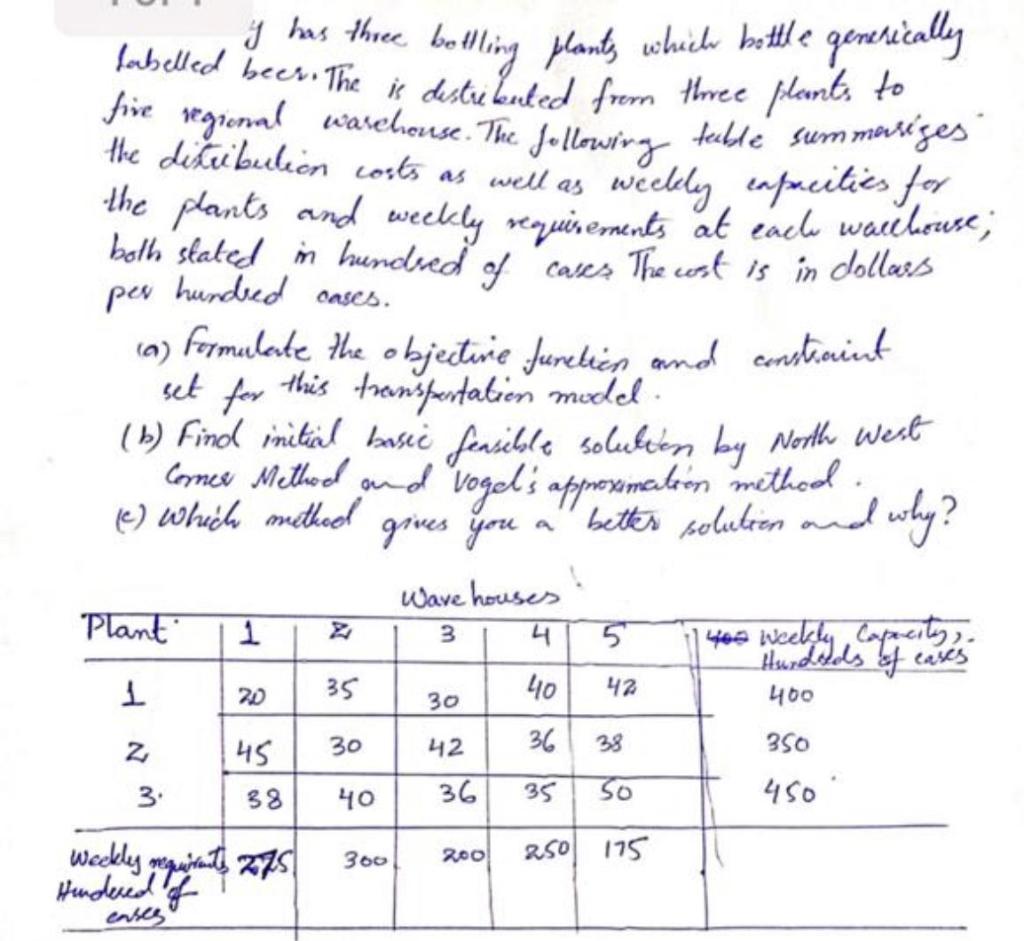 y has three bottling plants which bottle generically
labelled beer. The is distributed from three plants to
five regional warehouse. The following table summarizes
the distribution costs as well as weekly capacities for
the plants and weekly requirements at each warehouse;
both stated in hundred of cases. The cost is in dollars
per hundred cases.
(a) Formulate the objective function and constraint
set for this transportation model.
(b) Find initial basic feasible solution by North West
Corner Method and Vogel's approximation method.
(c) Which method gives you a better solution and why?
Warehouses
Plant 1 2 3 4 5 Weekly Capacity,
Hundreds of cases
1 20 35 30 40 42 400
2 45 30 42 36 38 350
3. 38 40 36 35 50 450
Weekly requirments 275 300 200 250 175
Hundered of
cases